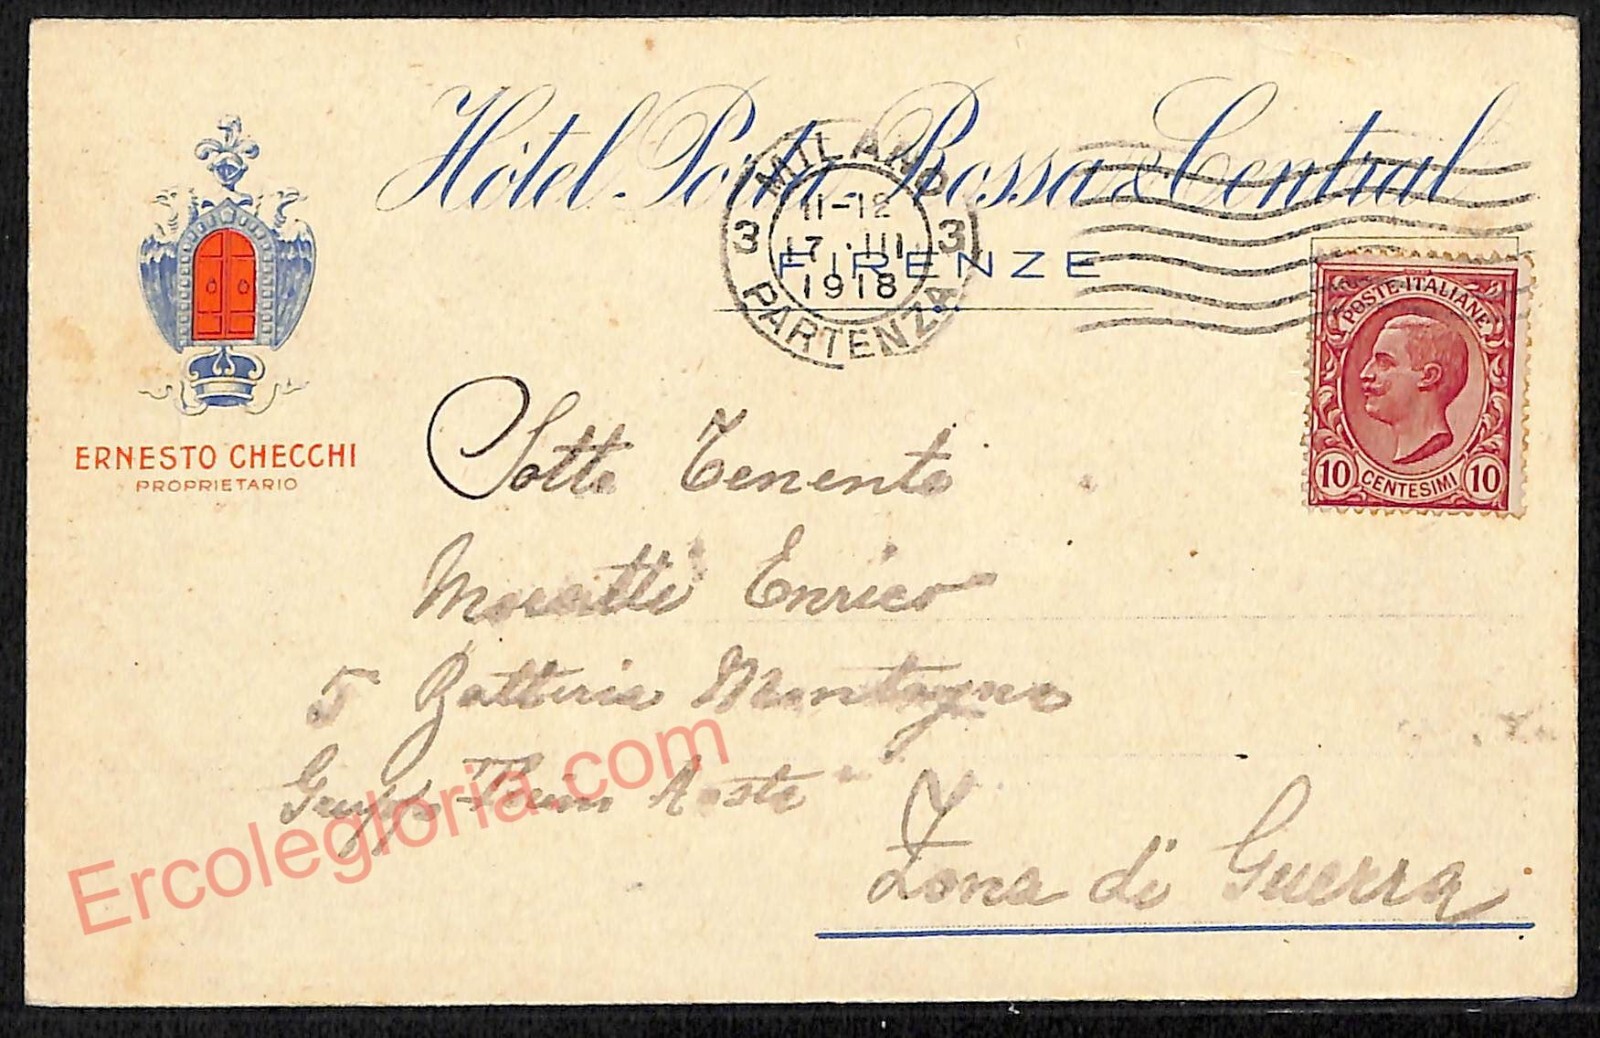 Hôtel Porta Rossa & Central
FIRENZE
MILANO
11-12
3 17 . III 3
1918
PARTENZA
POSTE ITALIANE
10 CENTESIMI 10
ERNESTO CHECCHI
PROPRIETARIO
Sotto Tenente
Enrico
5 Batteria Montagna
Gruppo Aosta
Zona di Guerra
Ercolegloria.com